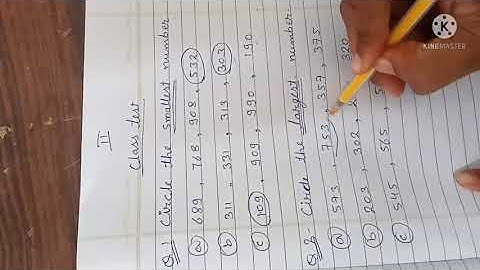 II
Class test
Q.1 Circle the smallest number
(a) 689 , 768 , 908 , 532
(b) 311 , 331 , 313 , 303
(c) 109 , 909 , 990 , 190
Q.2 Circle the largest number
(a) 573 , 753 , 357 , 375
(b) 203 , 302 , 320
(c) 545 , 565 , 5
KINEMASTER